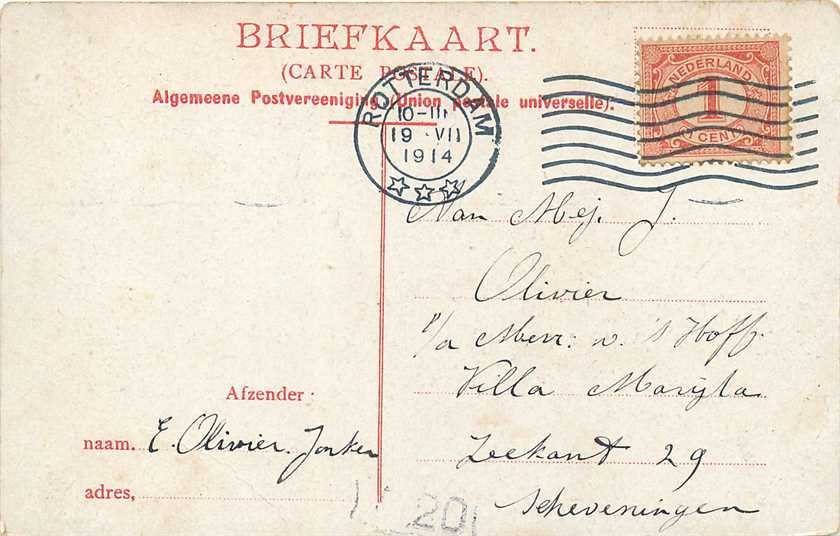 BRIEFKAART.
(CARTE POSTALE).
Algemeene Postvereeniging (Union postale universelle).
ROTTERDAM
10-11
19 VII
1914
NEDERLAND
1
1 CENT
Aan Mej. J.
Olivier
p/a Mevr: v. 't Hoff
Villa Maryla
Zeekant 29
Scheveningen
Afzender
naam. E. Olivier. Jonker
adres,
20